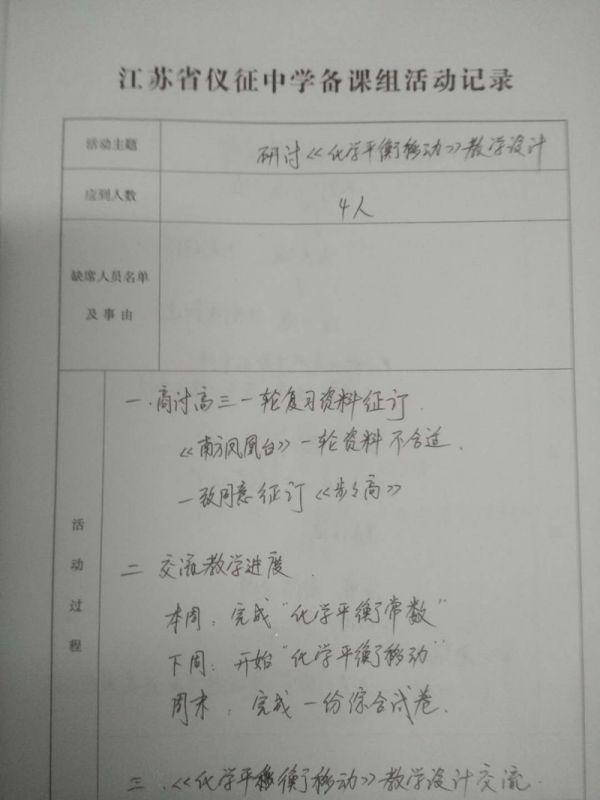 江苏省仪征中学备课组活动记录
活动主题 研讨《化学平衡移动》教学设计
应到人数 4人
缺席人员名单
及事由
活动过程
一.商讨高三一轮复习资料征订.
《南方凤凰台》一轮资料不合适.
一致同意征订《步步高》
二 交流教学进度.
本周：完成“化学平衡常数”
下周：开始“化学平衡移动”
周末：完成一份综合试卷.
三.《化学平衡移动》教学设计交流.